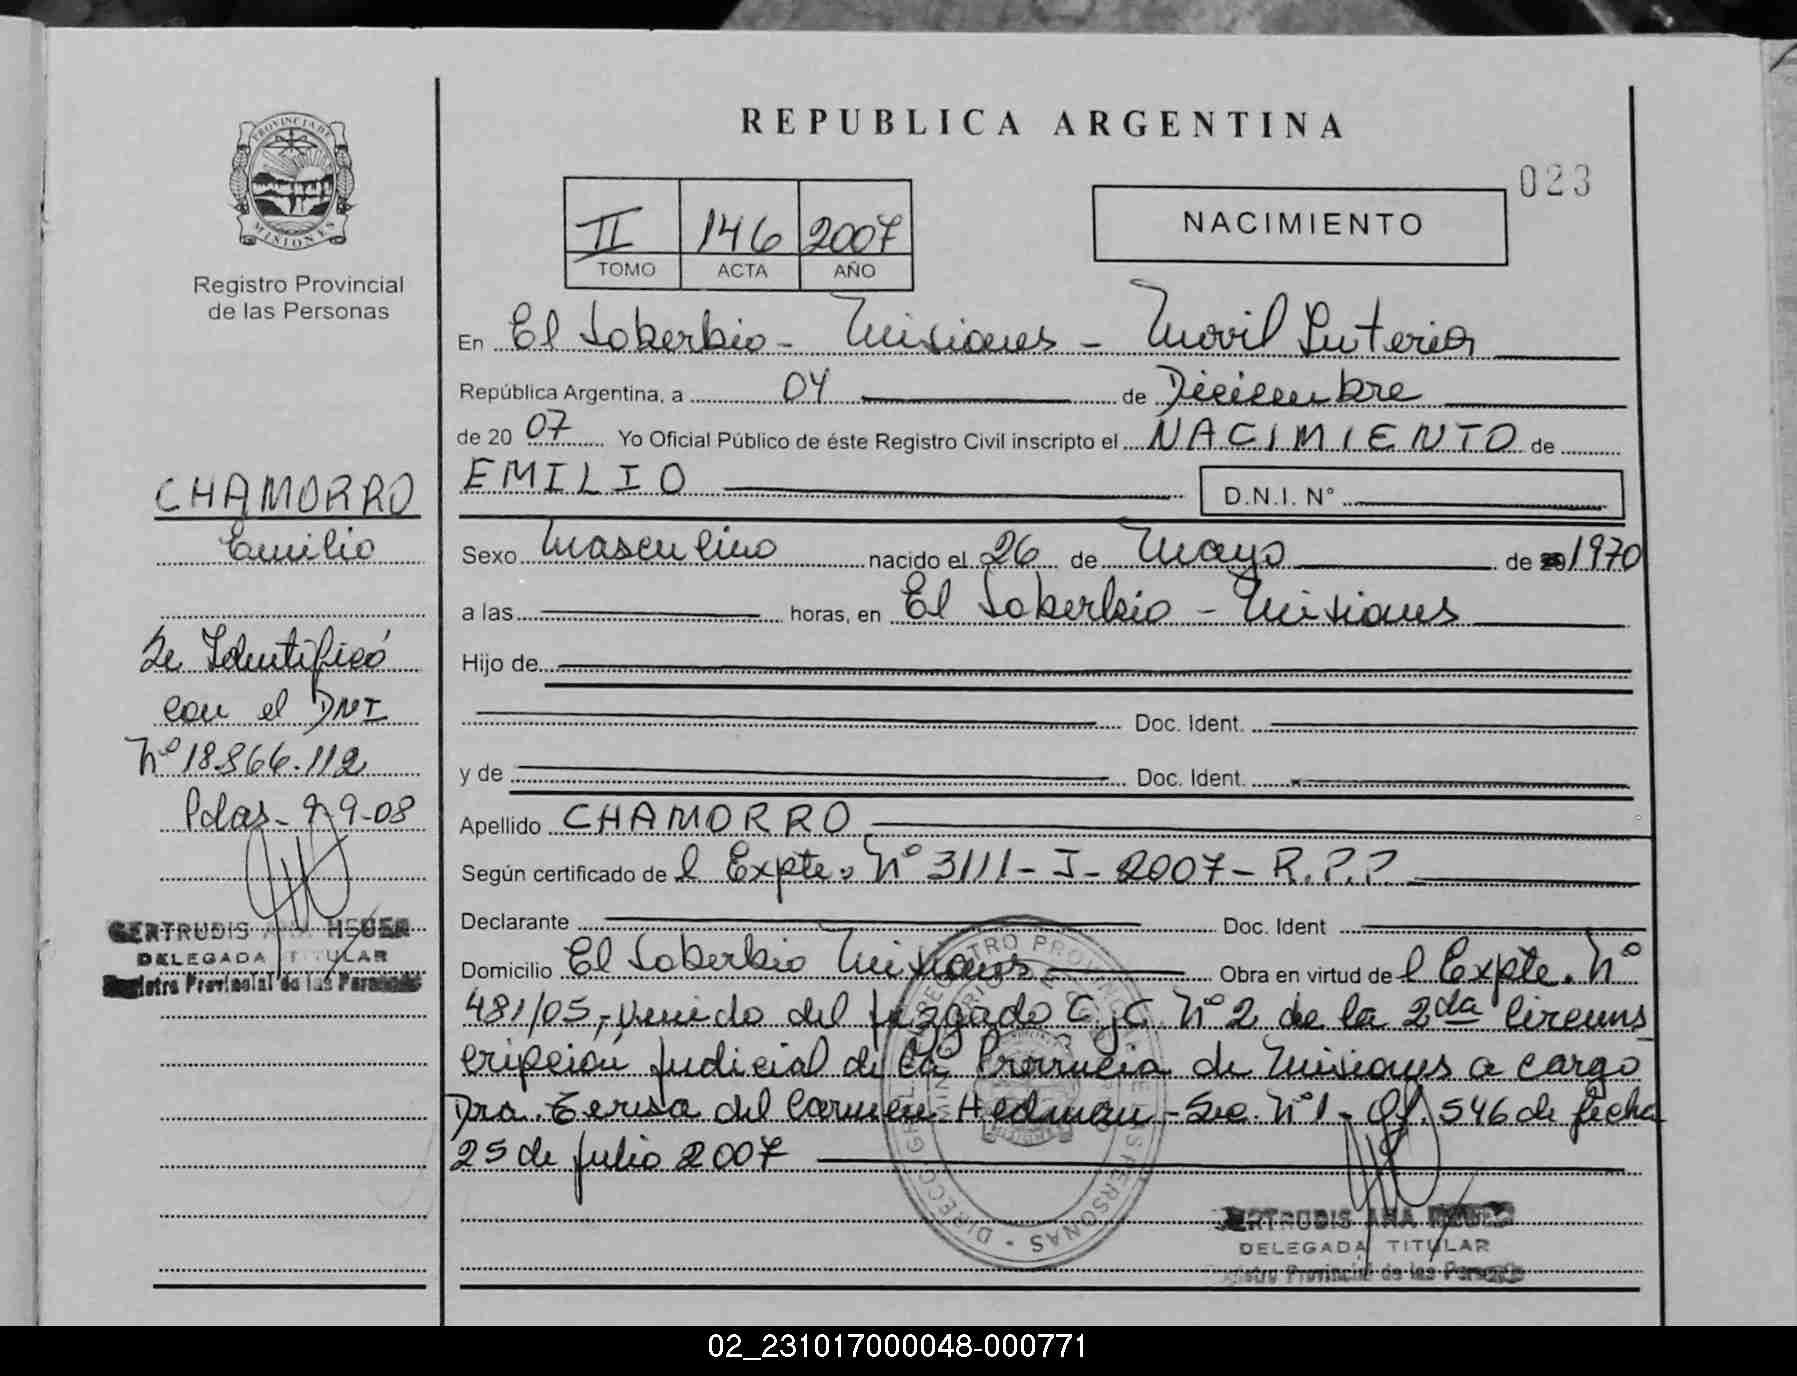 REPUBLICA ARGENTINA
023
PROVINCIA DE
MISIONES
Registro Provincial
de las Personas
II 146 2007
TOMO ACTA AÑO
NACIMIENTO
En El Soberbio - Misiones - Movil Interior
República Argentina, a 04 de Diciembre
de 20 07 Yo Oficial Público de éste Registro Civil inscripto el NACIMIENTO de
EMILIO D.N.I. N°
CHAMORRO
Emilio
Se Identificó
con el DNI
Nº 18.866.112
Pdas - 9-9-08
GERTRUDIS ANA HEGER
DELEGADA TITULAR
Registro Provincial de las Personas
Sexo Masculino nacido el 26 de Mayo de 1970
a las horas, en El Soberbio - Misiones
Hijo de
Doc. Ident.
y de Doc. Ident.
Apellido CHAMORRO
Según certificado de l Expte. Nº 3111-J-2007-R.P.P
Declarante Doc. Ident
Domicilio El Soberbio Misiones Obra en virtud de l Expte. Nº
481/05, venido del Juzgado C. y C. Nº 2 de la 2da Circuns
cripción Judicial de la Provincia de Misiones a cargo
Dra. Teresa del Carmen Hedman - Sec. Nº 1 - Of. 546 de fecha
25 de Julio 2007
GERTRUDIS ANA HEGER
DELEGADA TITULAR
Registro Provincial de las Personas
02_231017000048-000771